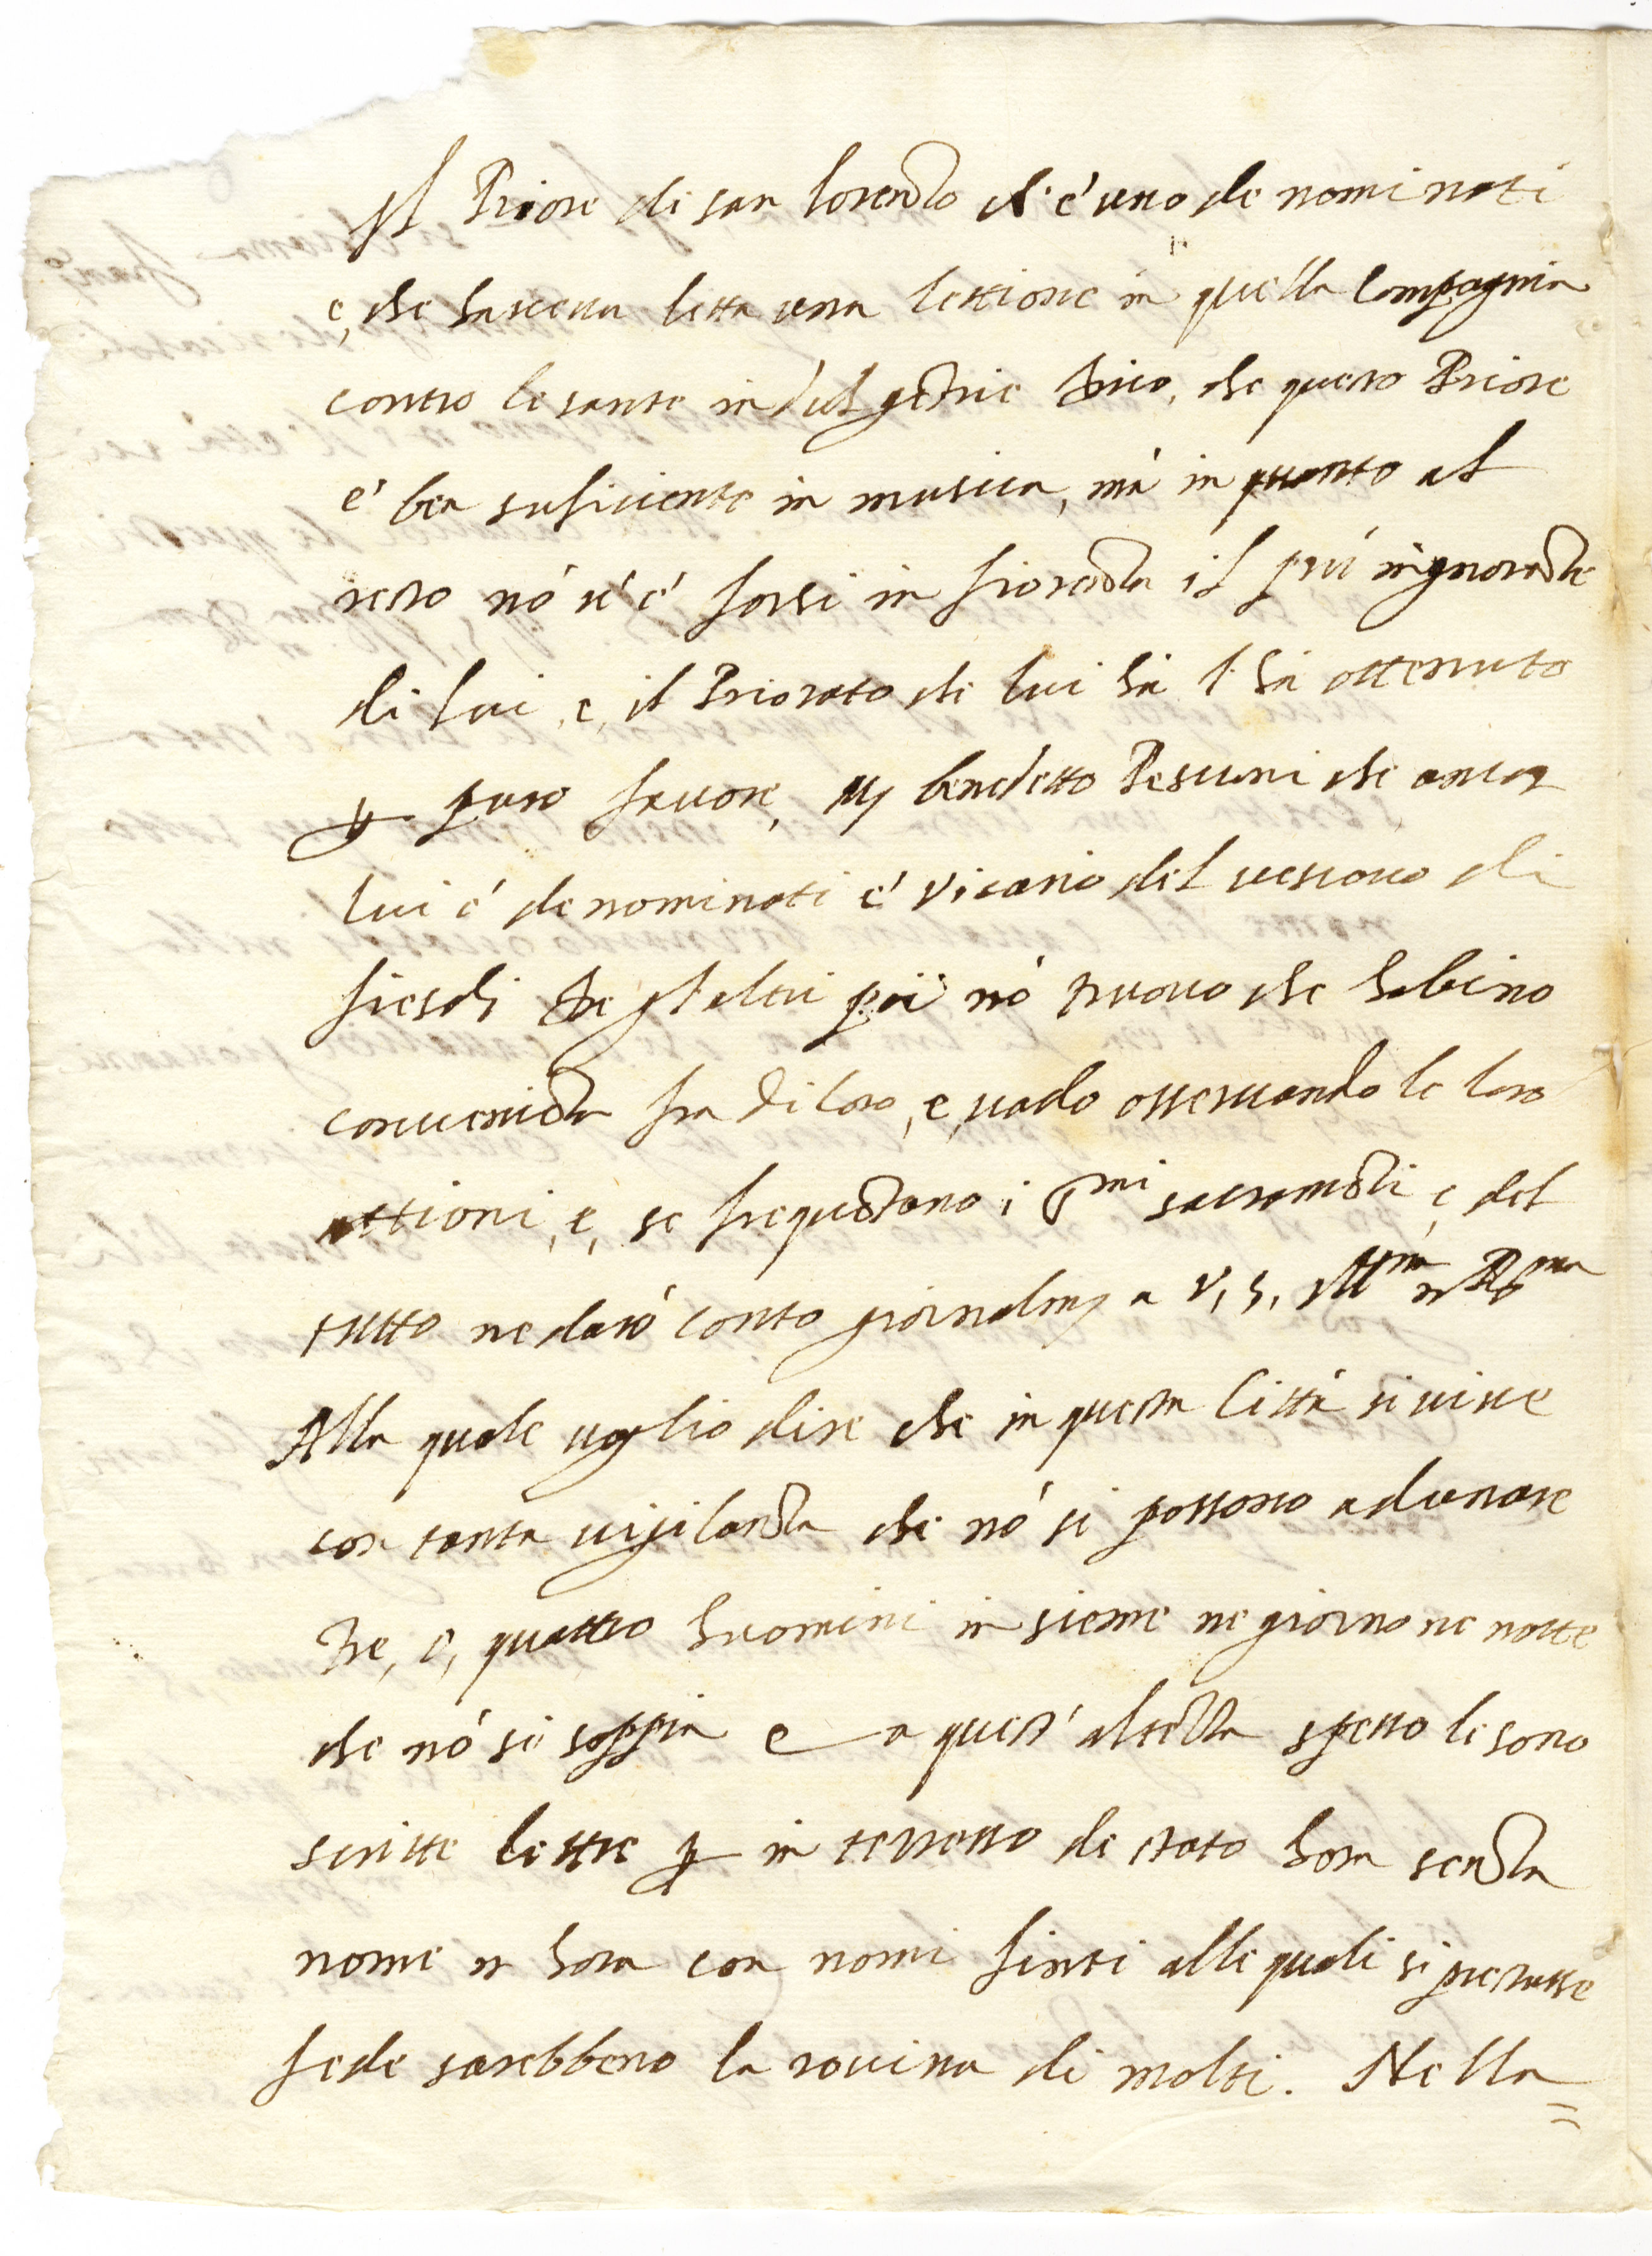 Il Priore di san lorenzo ch'è uno de nominati
e, che haveva letta una lettione in quella Compagnia
contro le sante indulgētie dico, che questo Priore
e' ben suficiente in musica, mà in quanto al
resto nō u'è forsi in fiorenza il più ingnorāte
di lui, e, il Priorato che lui hà l'hà ottenuto
ꝑ puro fauore, Mʳ benedetto Pescioni che ancor
lui è de nominati è Vicario del uescouo di
fiesoli De gl'altri poi nō truouo che habino
conueniēza fra di loro, e, uado osseruando le loro
attioni, e, se frequētano i S.mi sacramēti, e, del
tutto ne darò conto giornalmᵉ a V, S, Ill^ma et R^ma
Alla quale uoglio dire che in questa Città si uiue
con tanta uigilanza che nō si possono adunare
tre, o, quattro huomini insieme ne giorno ne notte
che nō si sappia e a quest'altezza spesso le sono
scritte lettre ꝑ in teresso di stato hora senza
nome et hora con nomi finti alle quali si prestasse
fede sarebbeno la rouina di molti. Nella